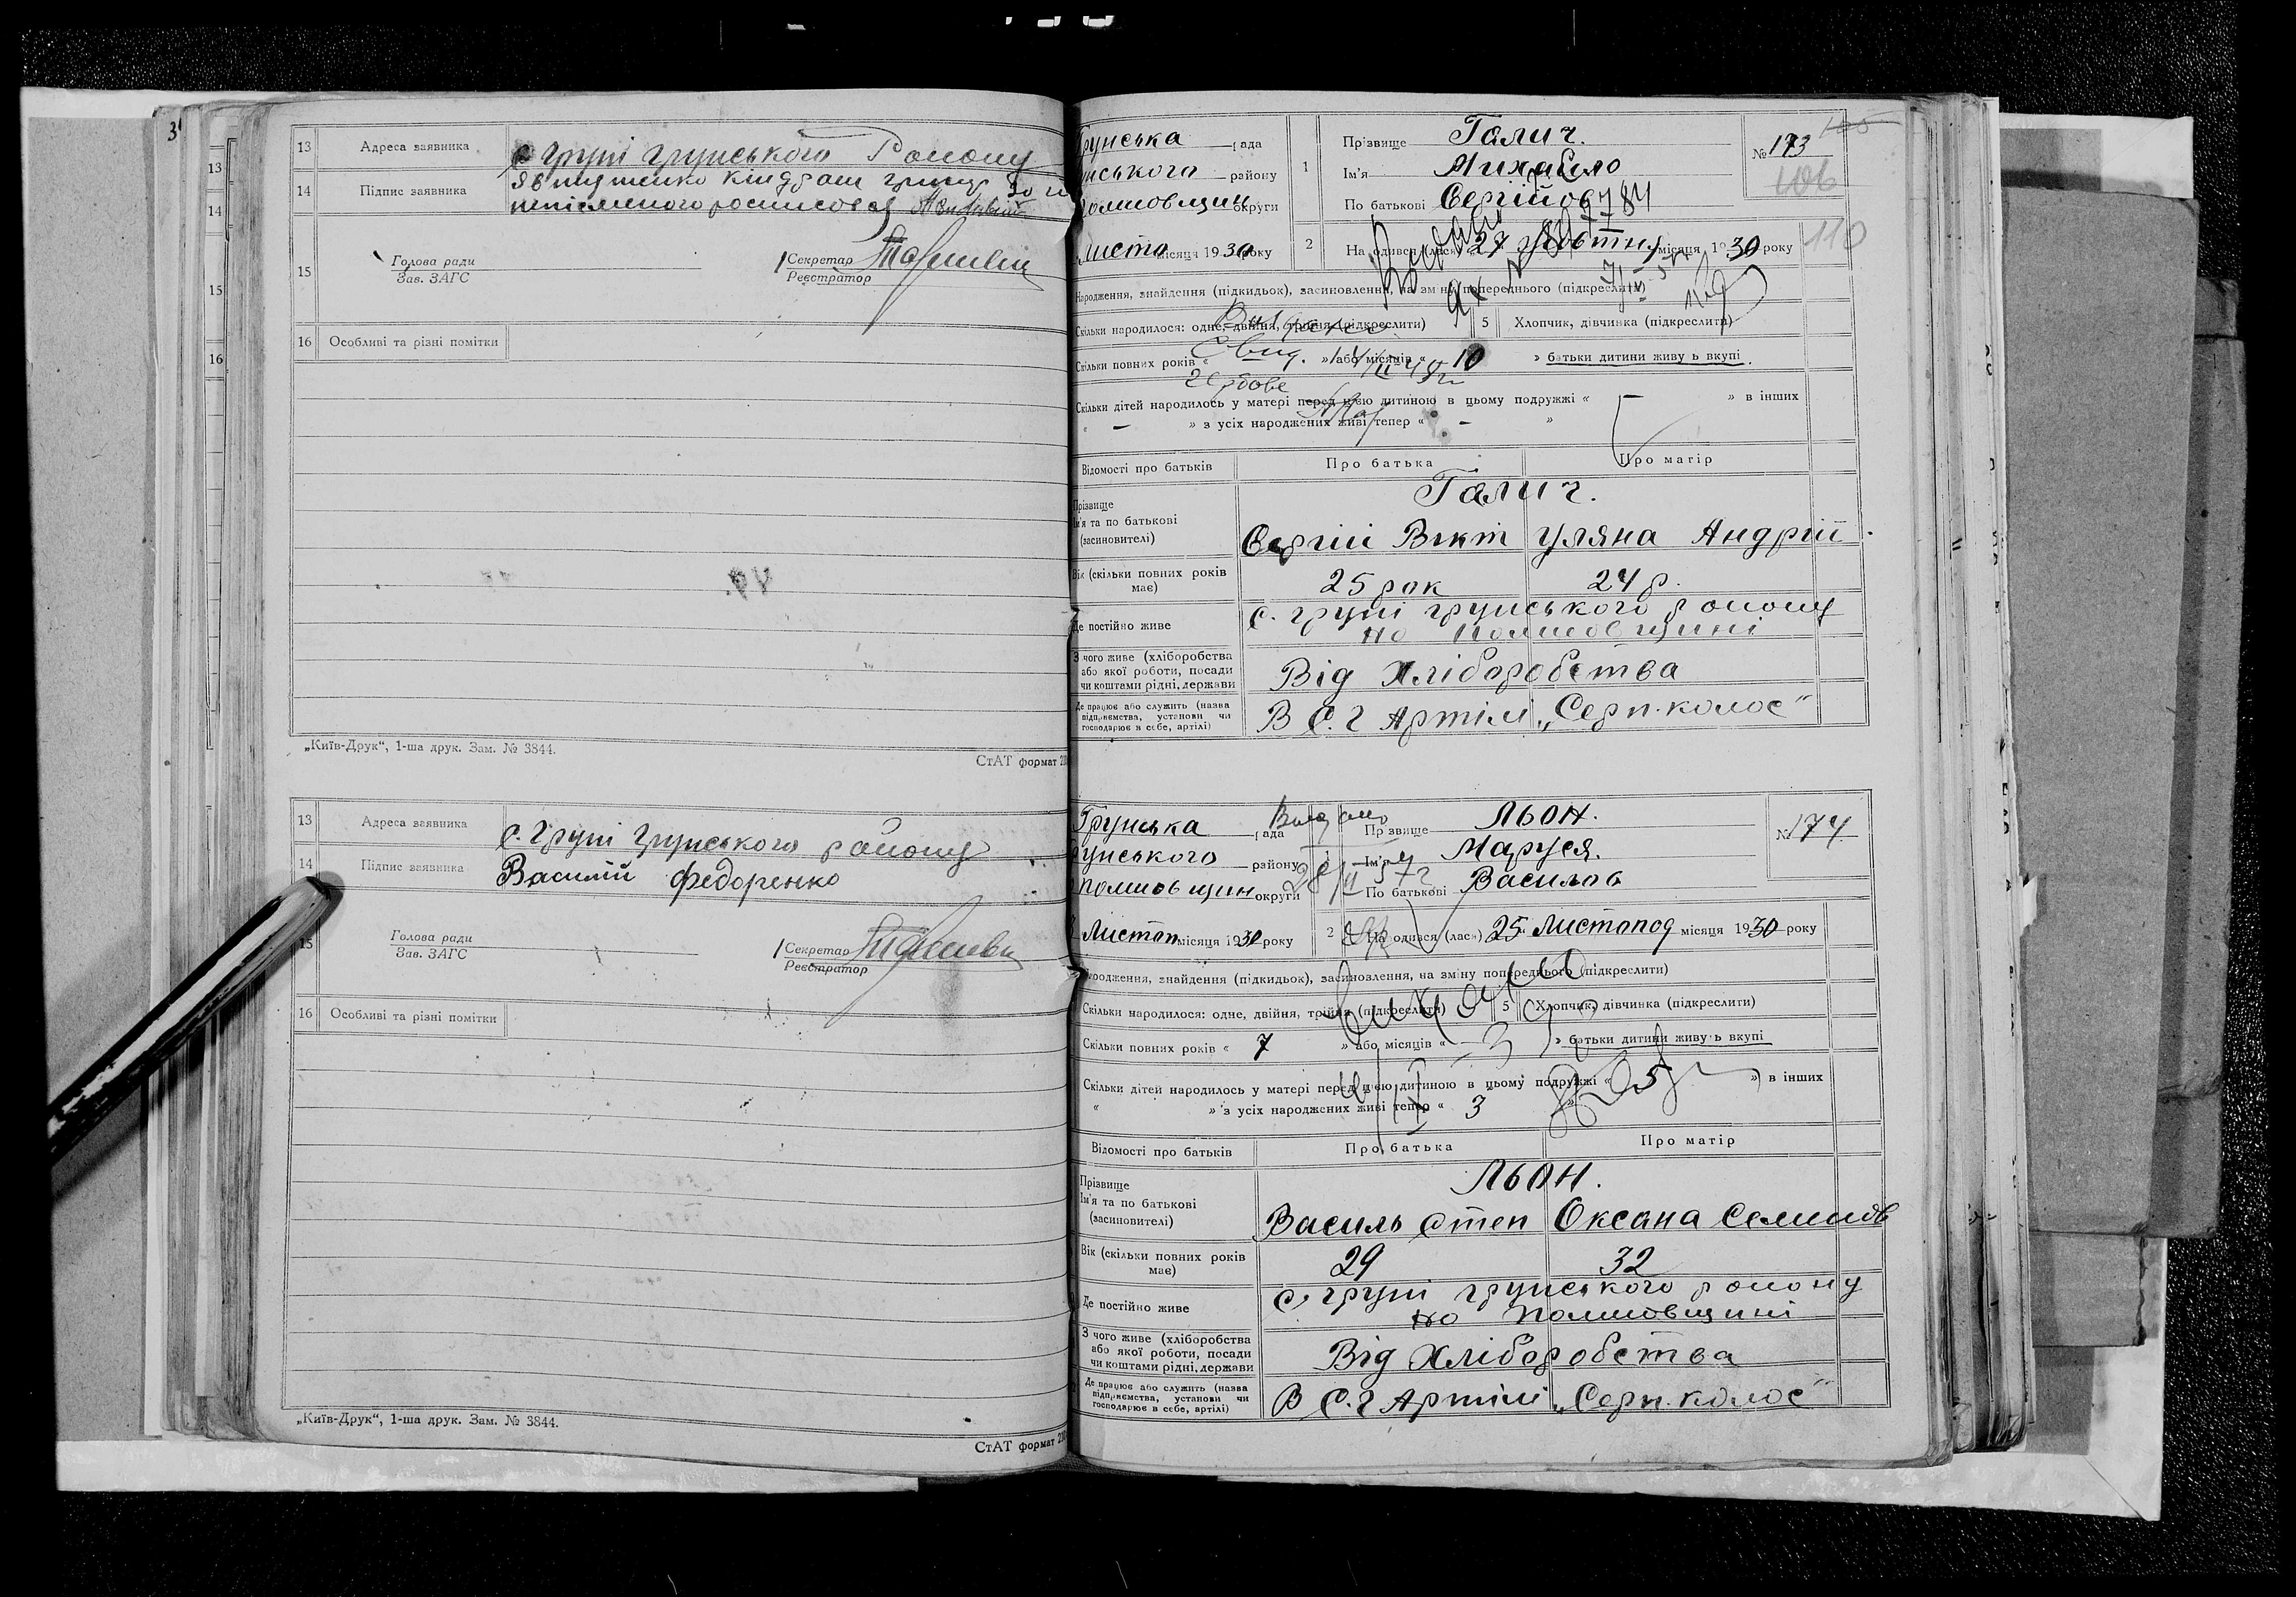 13 Адреса заявника с. Груні Грунського Району
14 Підпис заявника
15 Голова ради
Зав. ЗАГС
Секретар
Реєстратор
16 Особливі та різні помітки
„Київ-Друк“, 1-ша друк. Зам. № 3844.
СтАТ формат
13 Адреса заявника с. Груні Грунського району
14 Підпис заявника Василій Федоренко
15 Голова ради
Зав. ЗАГС
Секретар
Реєстратор
16 Особливі та різні помітки
„Київ-Друк“, 1-ша друк. Зам. № 3844.
СтАТ формат
Грунська рада
району
округи
місяця 1930 року
1 Прізвище Галич.
Ім'я Михайло
По батькові Сергійов
№ 173
105
106
110
2 На одився (лась) 27 Жовтня місяця 1930 року
Народження, знайдення (підкидьок), засиновлення, на зміну попереднього (підкреслити)
Скільки народилося: одне, двійня, трійня (підкреслити) 5 Хлопчик, дівчинка (підкреслити)
Скільки повних років « » або місяців « 10 » батьки дитини живуть вкупі
Скільки дітей народилось у матері перед цією дитиною в цьому подружжі « » в інших
« — » з усіх народжених живі тепер « - »
Відомості про батьків Про батька Про матір
Прізвище Галич.
Ім'я та по батькові
(засиновителі) Сергій Вікт Уляна Андрії
Вік (скільки повних років має) 25 рок 24 р.
Де постійно живе с. Груні Грунського району
на Полтовщині
З чого живе (хліборобства
або якої роботи, посади
чи коштами рідні, держави Від Хліборобства
Де працює або служить (назва
підприємства, установи чи
господарює в себе, артілі) В С. Г Артіл „Серп. колос“
Грунська рада
району
округи
Листоп місяця 1930 року
Прізвище Льон.
Ім'я Маруся.
По батькові Василов
№ 174
2 На одився (лась) 25 Листопод місяця 1930 року
Народження, знайдення (підкидьок), засиновлення, на зміну попереднього (підкреслити)
Скільки народилося: одне, двійня, трійня (підкреслити) 5 Хлопчик, дівчинка (підкреслити)
Скільки повних років « 7 » або місяців « » батьки дитини живуть вкупі
Скільки дітей народилось у матері перед цією дитиною в цьому подружжі « 5 » в інших
« » з усіх народжених живі тепер « 3
Відомості про батьків Про батька Про матір
Прізвище Льон.
Ім'я та по батькові
(засиновителі) Василь Степ Оксана Семинов
Вік (скільки повних років має) 29 32
Де постійно живе с. Груні Грунського району
на Полтовщині
З чого живе (хліборобства
або якої роботи, посади
чи коштами рідні, держави Від Хліборобства
Де працює або служить (назва
підприємства, установи чи
господарює в себе, артілі) В С. Г Артілі „Серп. колос“